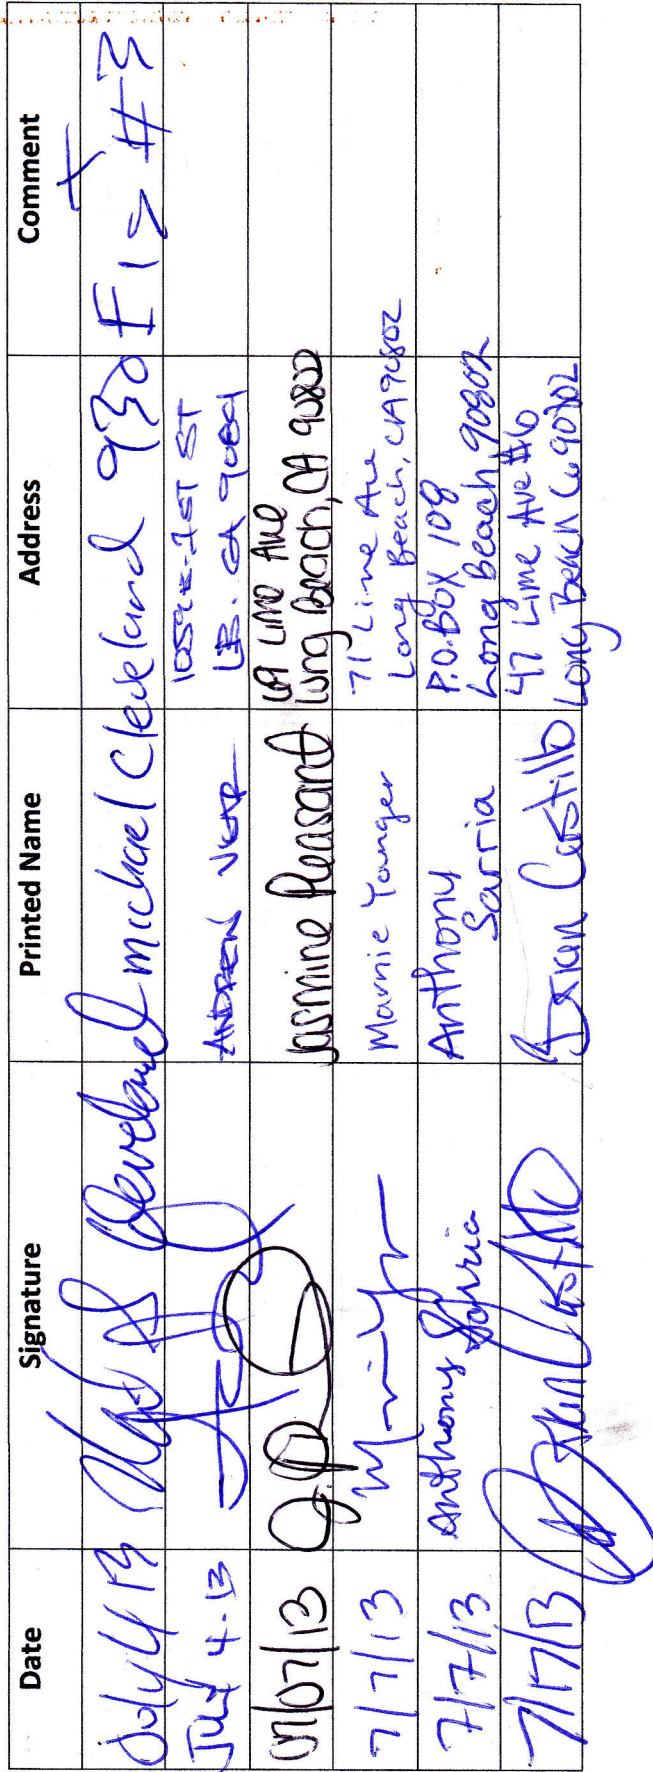 Date Signature Printed Name Address Comment
July 4 13 Cleveland michael Cleveland 930 E 1st #3
July 4-13 ANDREW 1059 E-1ST ST
LB. CA
07/07/13 J.P. Jasmine Pleasant 69 Lime Ave
Long Beach, CA 90802
7/7/13 Marnie Younger 71 Lime Ave
Long Beach, CA 90802
7/7/13 Anthony Sarria Anthony Sarria P.O. BOX 108
Long Beach 90802
7/17/13 Brian Castillo Brian Castillo 47 Lime Ave #6
Long Beach Ca 90802